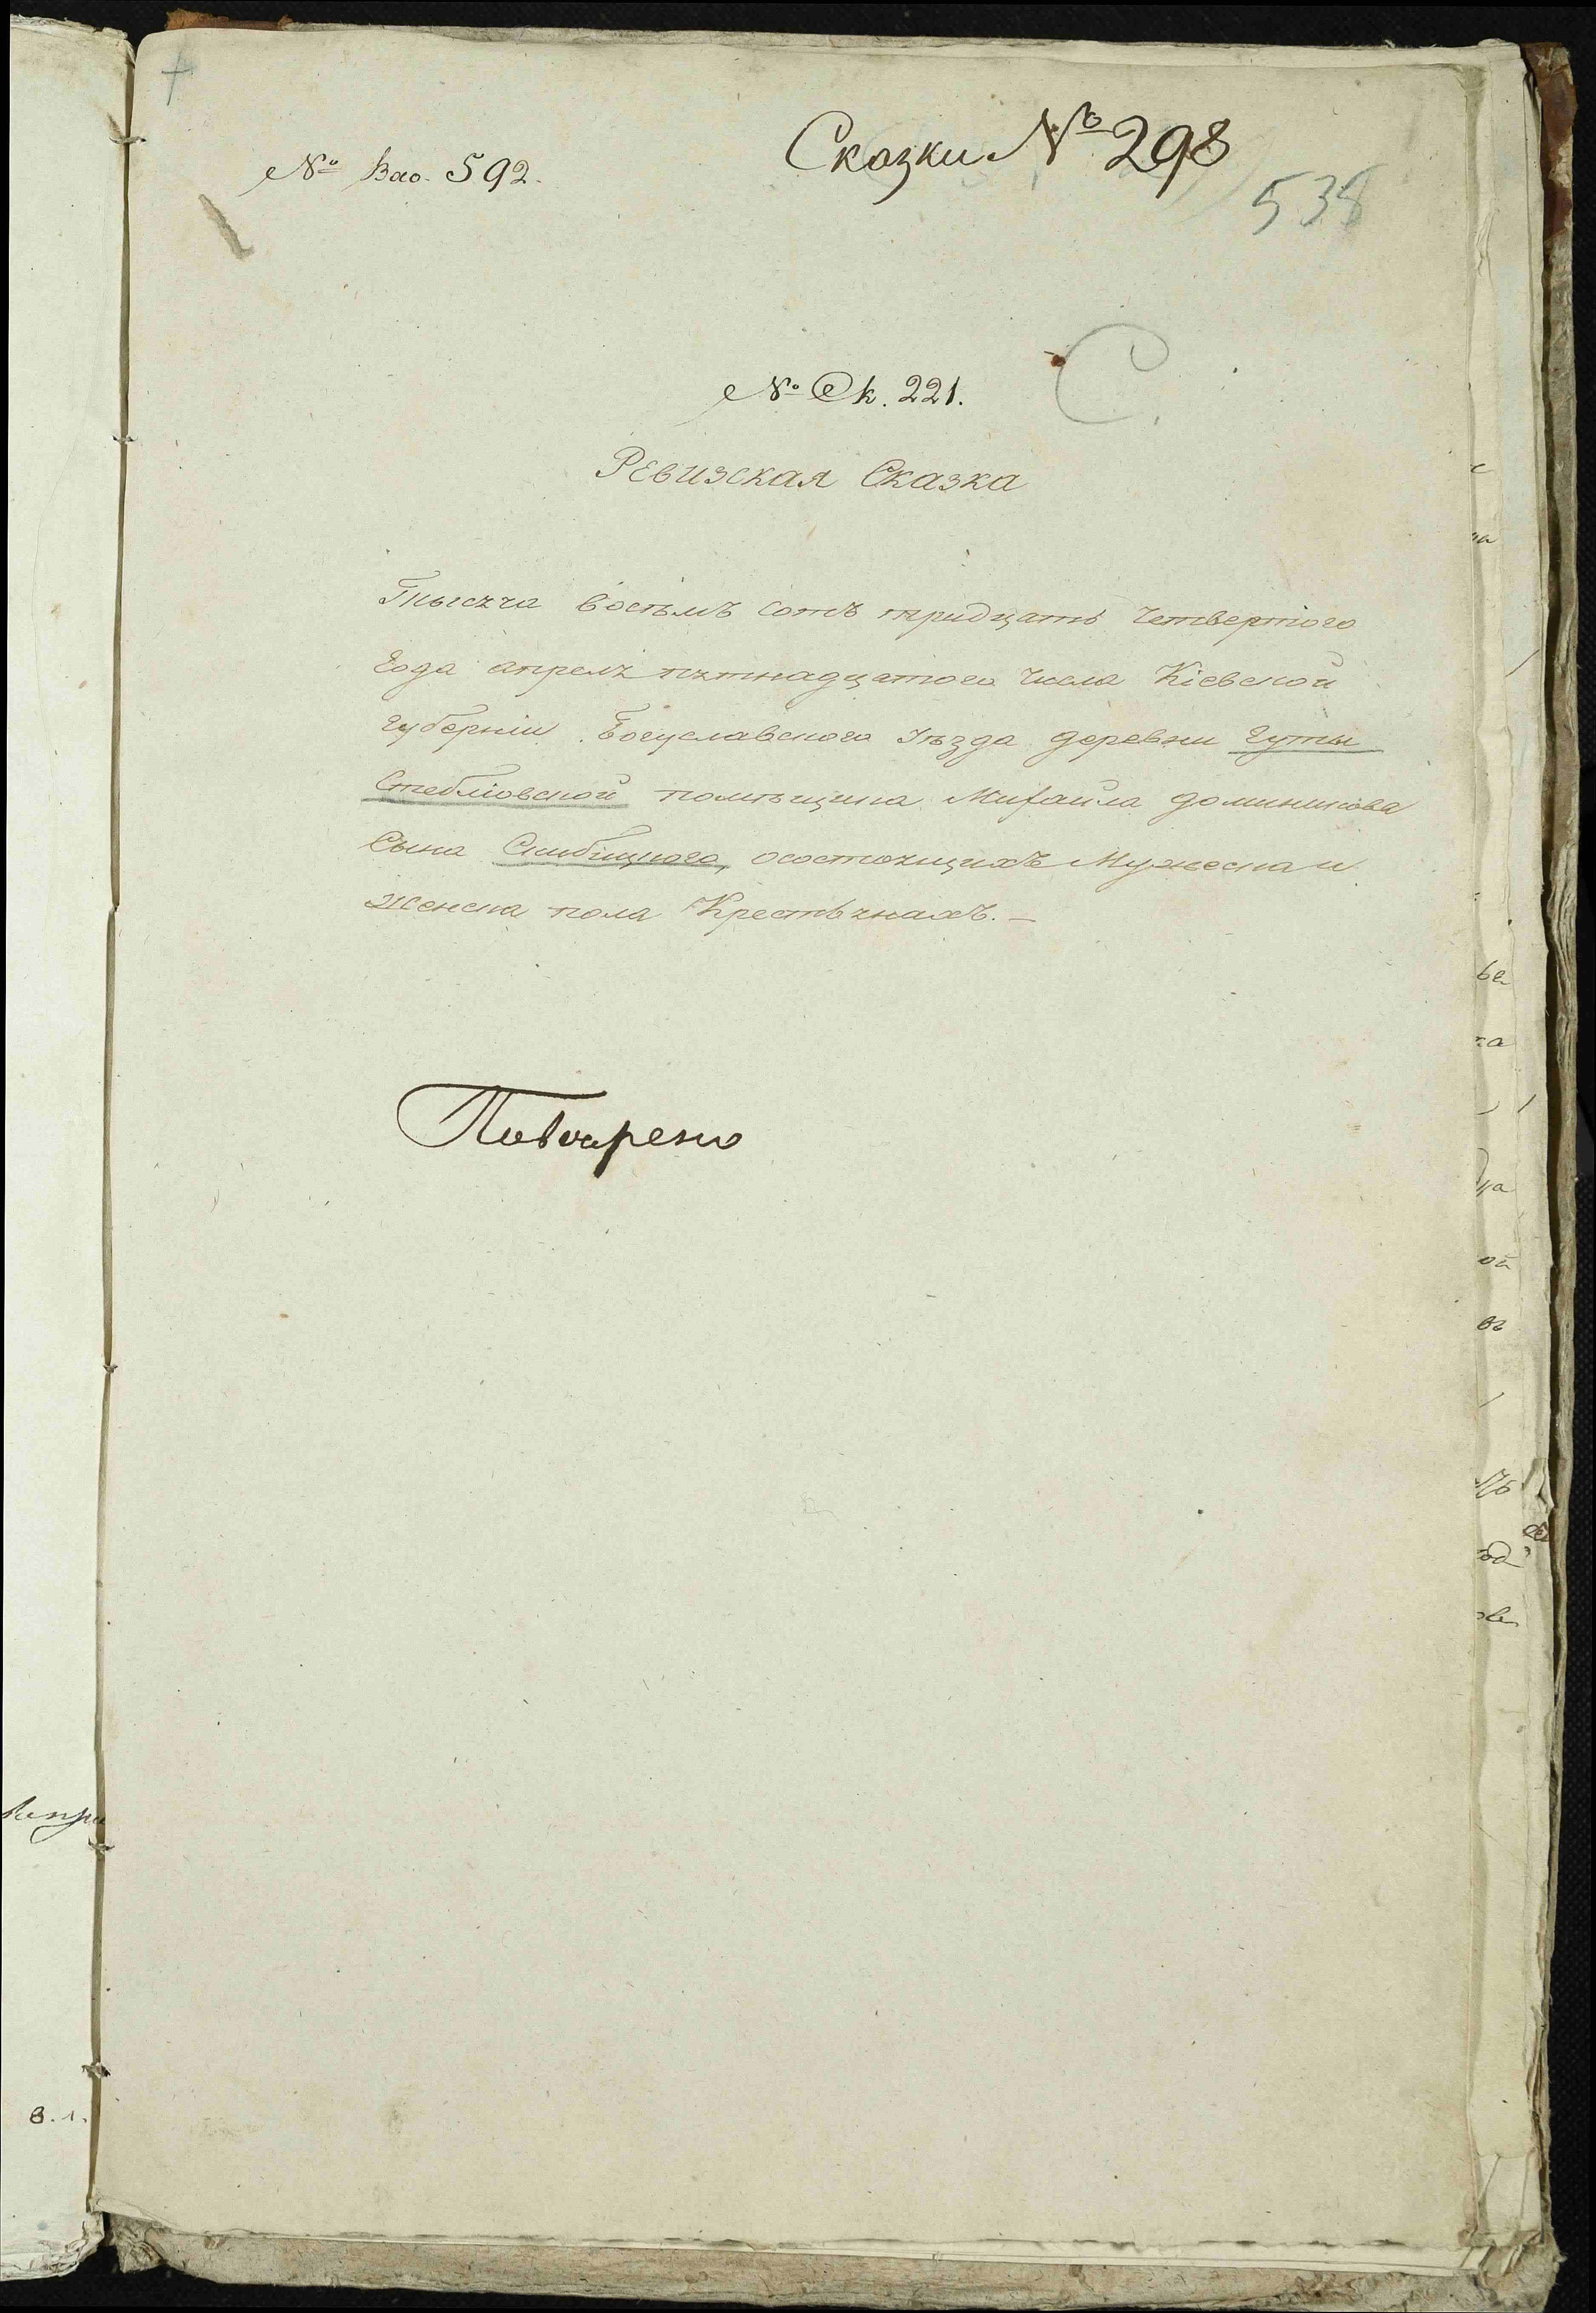 Сказки № 298
№ Вхо. 592.
538
№ Ск. 221.
С
Ревизская Сказка
Тысяча восѣмъ сотъ тридцать четвертого
Года апреля пятнадцатого числа Кіевской
Губерніи Богуславского Уѣзда деревни Гуты
Стебліовской помѣщика Михаила доминикова
Сына Скибіцкого, осостоящихъ Мужеска и
женска пола Крестьянахъ. —
Поверено